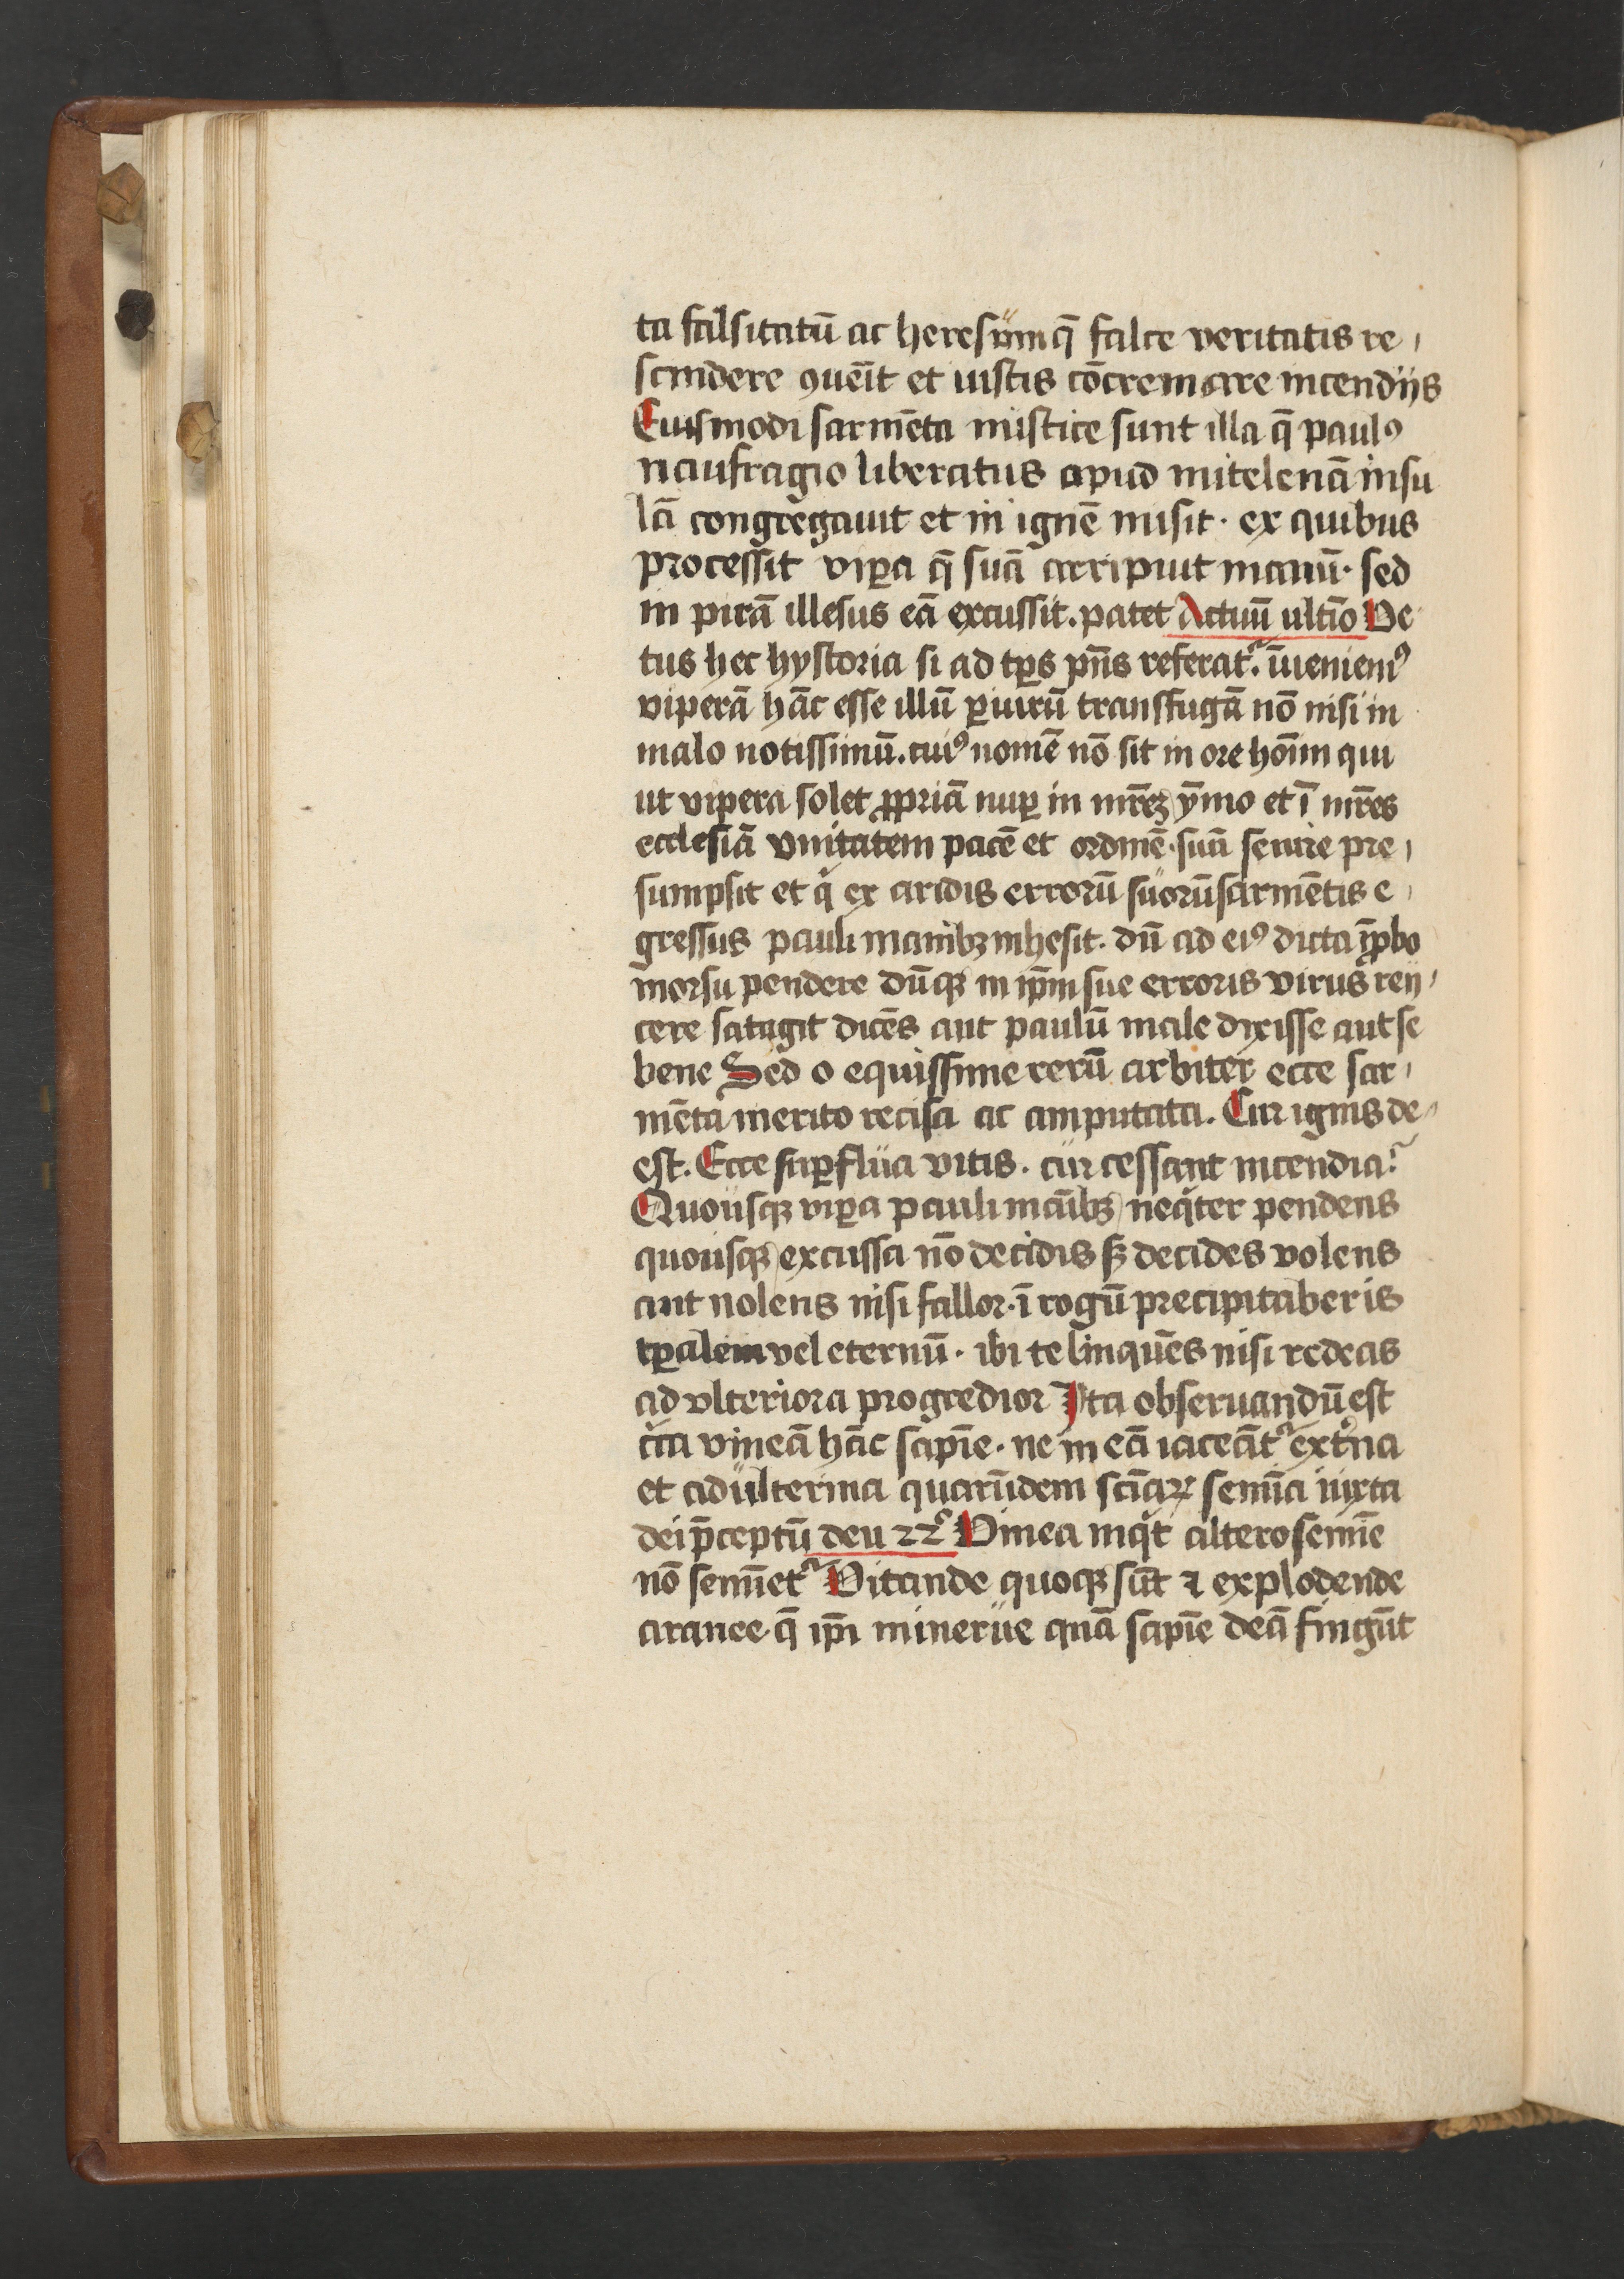 ta falsitatū ac heresiūm q̄ falce veritatis re,
scindere ꝯuēīt et iustis cōcremare incendijs
Cuiusmodi sarmēta mistice sunt illa q̄ paulꝰ
naufragio liberatus apud mitelenā insu
lā congregauit et in ignē misit. ex quibus
processit viꝑa q̄ suā arripuit manū. sed
in pirā illesus eā excussit. patet Actuū ultīo Ve
tus hec hystoria si ad tꝑs pn̄s referatr̉. īueniemꝰ
viperā hāc esse illū ꝑuirū transfugā nō nisi in
malo notissimū. cuiꝰ nomē nō sit in ore hoīm qui
ut vipera solet ꝓpriā nuꝑ in mrēꝫ ymo et ī mrēs
ecclesiā vnitatem pacē et ordinē. suā seuire pre,
sumpsit et q̇ ex aridis errorū suorū sarmētis e,
gressus pauli manibꝫ inhesit. dū ad eiꝰ dicta īꝓbo
morsu pendere dūqꝫ in ip̄m sue erroris virus reij,
cere satagit dicēs aut paulū male dixisse aut se
bene Sed o equissime rerū arbiter ecce sar,
mēta merito recisa ac amputata. Cur ignis de,
est. Ecce suꝑflua vitis. cur cessant incendia?
Quousqꝫ viꝑa pauli māibꝫ neq̇ter pendens
quousqꝫ excussa nō decidis sꝫ decides volens
aut nolens nisi fallor. ī rogū precipitaberis
tꝑalem vel eternū. ibi te linquēs nisi redeas
ad vlteriora progredior Ita obseruandū est
circa vineā hāc sapīe. ne in eā iaceātr̉ ext̉na
et adulterina quarūdem scīaꝝ semīa iuxta
dei p̄ceptū deu 22º Vinea inq̇t altero semīe
nō semīetr̉ Vitande quoqꝫ sūt ⁊ explodende
aranee. q̄ ip̄i minerue quā sapīe deā fingūt